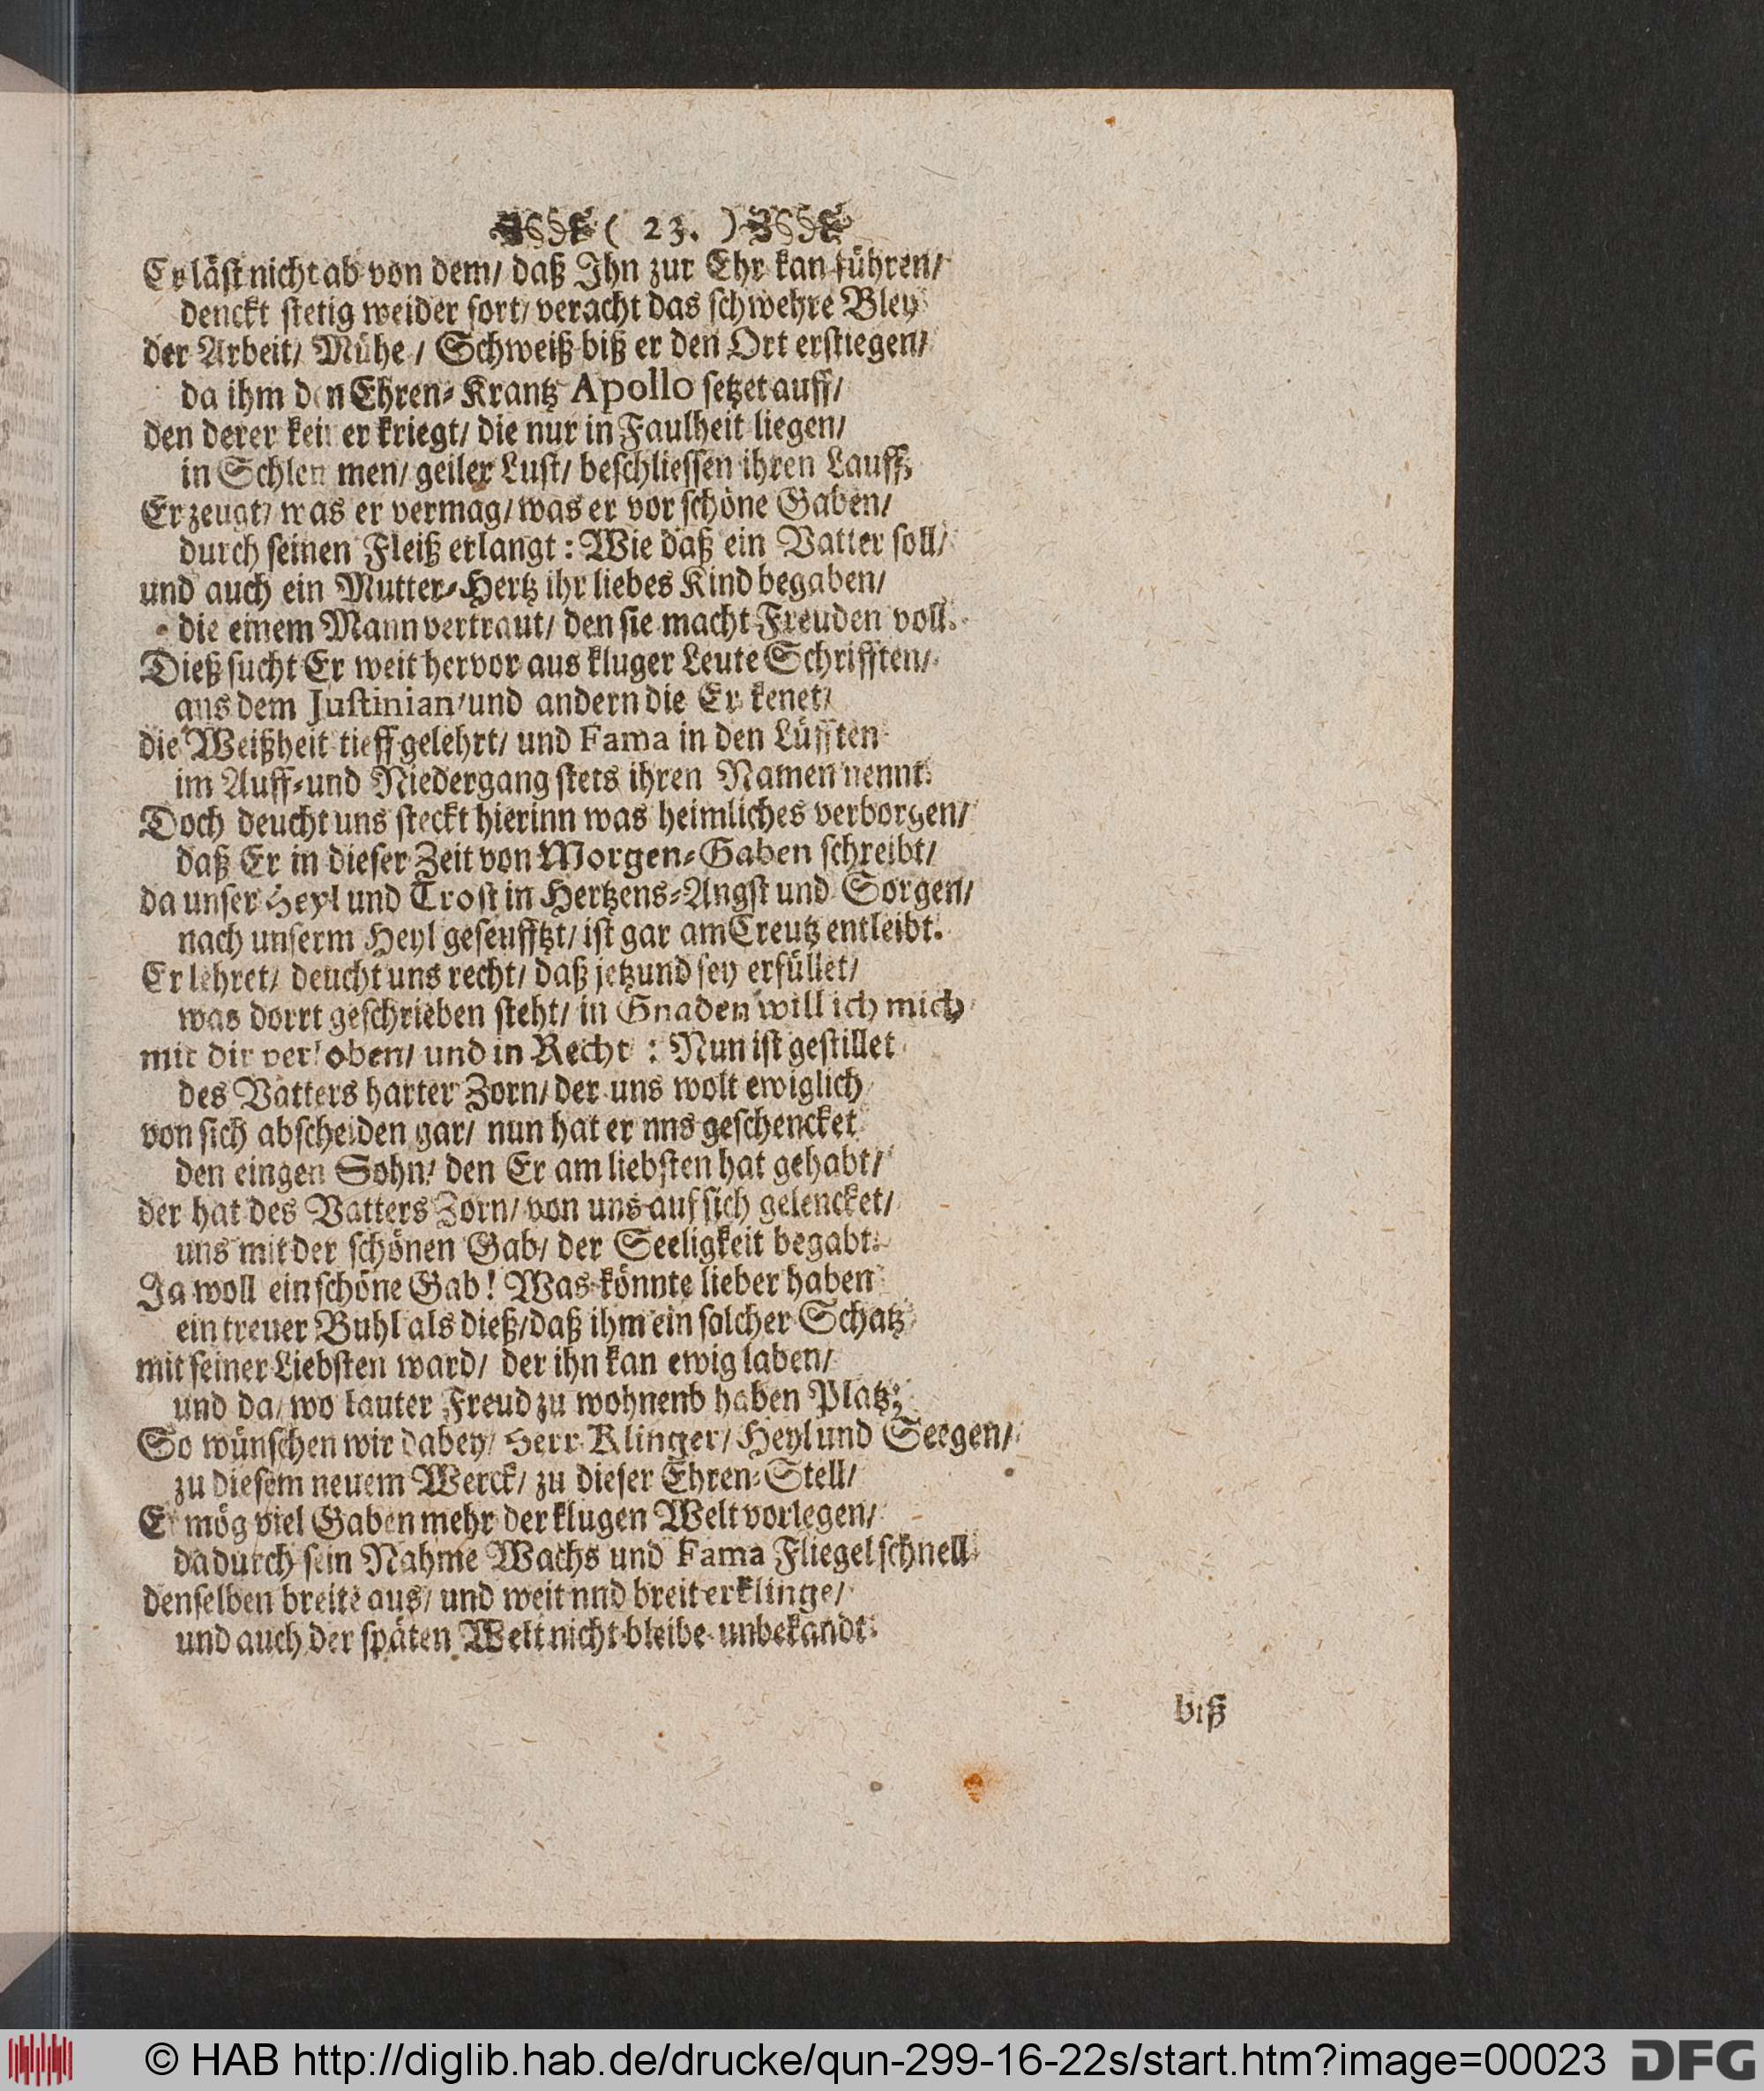 ( 23. )
Er läst nicht ab von dem/ daß Ihn zur Ehr kan führen/
denckt stetig weider fort/ veracht das schwehre Bley
der Arbeit/ Mühe / Schweiß biß er den Ort erstiegen/
da ihm den Ehren-Krantz Apollo setzet auff/
den derer keiner kriegt/ die nur in Faulheit liegen/
in Schlemmen/ geiler Lust/ beschliessen ihren Lauff.
Er zeugt/ was er vermag/ was er vor schöne Gaben/
durch seinen Fleiß erlangt : Wie daß ein Vatter soll/
und auch ein Mutter-Hertz ihr liebes Kind begaben/
die einem Mann vertraut/ den sie macht Freuden voll.
Dieß sucht Er weit hervor aus kluger Leute Schrifften/
aus dem Justinian/ und andern die Er kenet/
die Weißheit tieff gelehrt/ und Fama in den Lüfften
im Auff-und Niedergang stets ihren Namen nennt.
Doch deucht uns steckt hierinn was heimliches verborgen/
daß Er in dieser Zeit von Morgen-Gaben schreibt/
da unser Heyl und Trost in Hertzens-Angst und Sorgen/
nach unserm Heyl geseufftzt/ ist gar am Creutz entleibt.
Er lehret/ deucht uns recht/ daß jetzund sey erfüllet/
was dorrt geschrieben steht/ in Gnaden will ich mich
mit dir verloben/ und in Recht : Nun ist gestillet
des Vatters harter Zorn/ der uns wolt ewiglich
von sich abscheiden gar/ nun hat er nns geschencket
den eingen Sohn/ den Er am liebsten hat gehabt/
der hat des Vatters Zorn/ von uns auf sich gelencket/
uns mit der schönen Gab/ der Seeligkeit begabt.
Ja woll ein schöne Gab! Was könnte lieber haben
ein treuer Buhl als dieß/ daß ihm ein solcher Schatz
mit seiner Liebsten ward/ der ihn kan ewig laben/
und da/ wo lauter Freud zu wohnenb haben Platz;
So wünschen wir dabey/ Herr Klinger/ Heyl und Seegen/
zu diesem neuem Werck/ zu dieser Ehren-Stell/
Er mög viel Gaben mehr der klugen Welt vorlegen/
dadurch sein Nahme Wachs und Fama Fliegel schnell
denselben breite aus/ und weit nnd breit erklinge/
und auch der späten Welt nicht bleibe unbekandt.
biß
© HAB http://diglib.hab.de/drucke/qun-299-16-22s/start.htm?image=00023
DFG